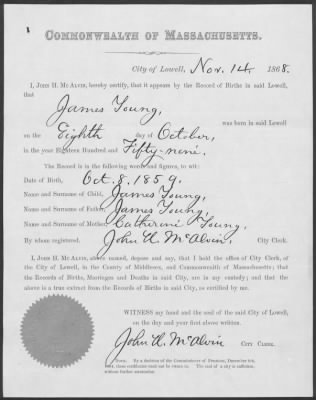 COMMONWEALTH OF MASSACHUSETTS.
City of Lowell, Nov. 14 1868.
I, JOHN H. MCALVIN, hereby certify, that it appears by the Record of Births in said Lowell,
that
James Young,
was born in said Lowell
on the Eighth day of October,
in the year Eighteen Hundred and Fifty-nine.
The Record is in the following words and figures, to wit:
Date of Birth, Oct. 8. 1859.
Name and Surname of Child, James Young,
Name and Surname of Father, James Young,
Name and Surname of Mother, Catherine Young,
By whom registered, John H. McAlvin, City Clerk.
I, JOHN H. MCALVIN, above named, depose and say, that I hold the office of City Clerk, of
the City of Lowell, in the County of Middlesex, and Commonwealth of Massachusetts; that
the Records of Births, Marriages and Deaths in said City, are in my custody; and that the
above is a true extract from the Records of Births in said City, as certified by me.
WITNESS my hand and the seal of the said City of Lowell,
on the day and year first above written.
John H. McAlvin CITY CLERK.
NOTE. By a decision of the Commissioner of Pensions, December 6th,
these certificates need not be sworn to. The seal of a city is sufficient,
without further attestation.